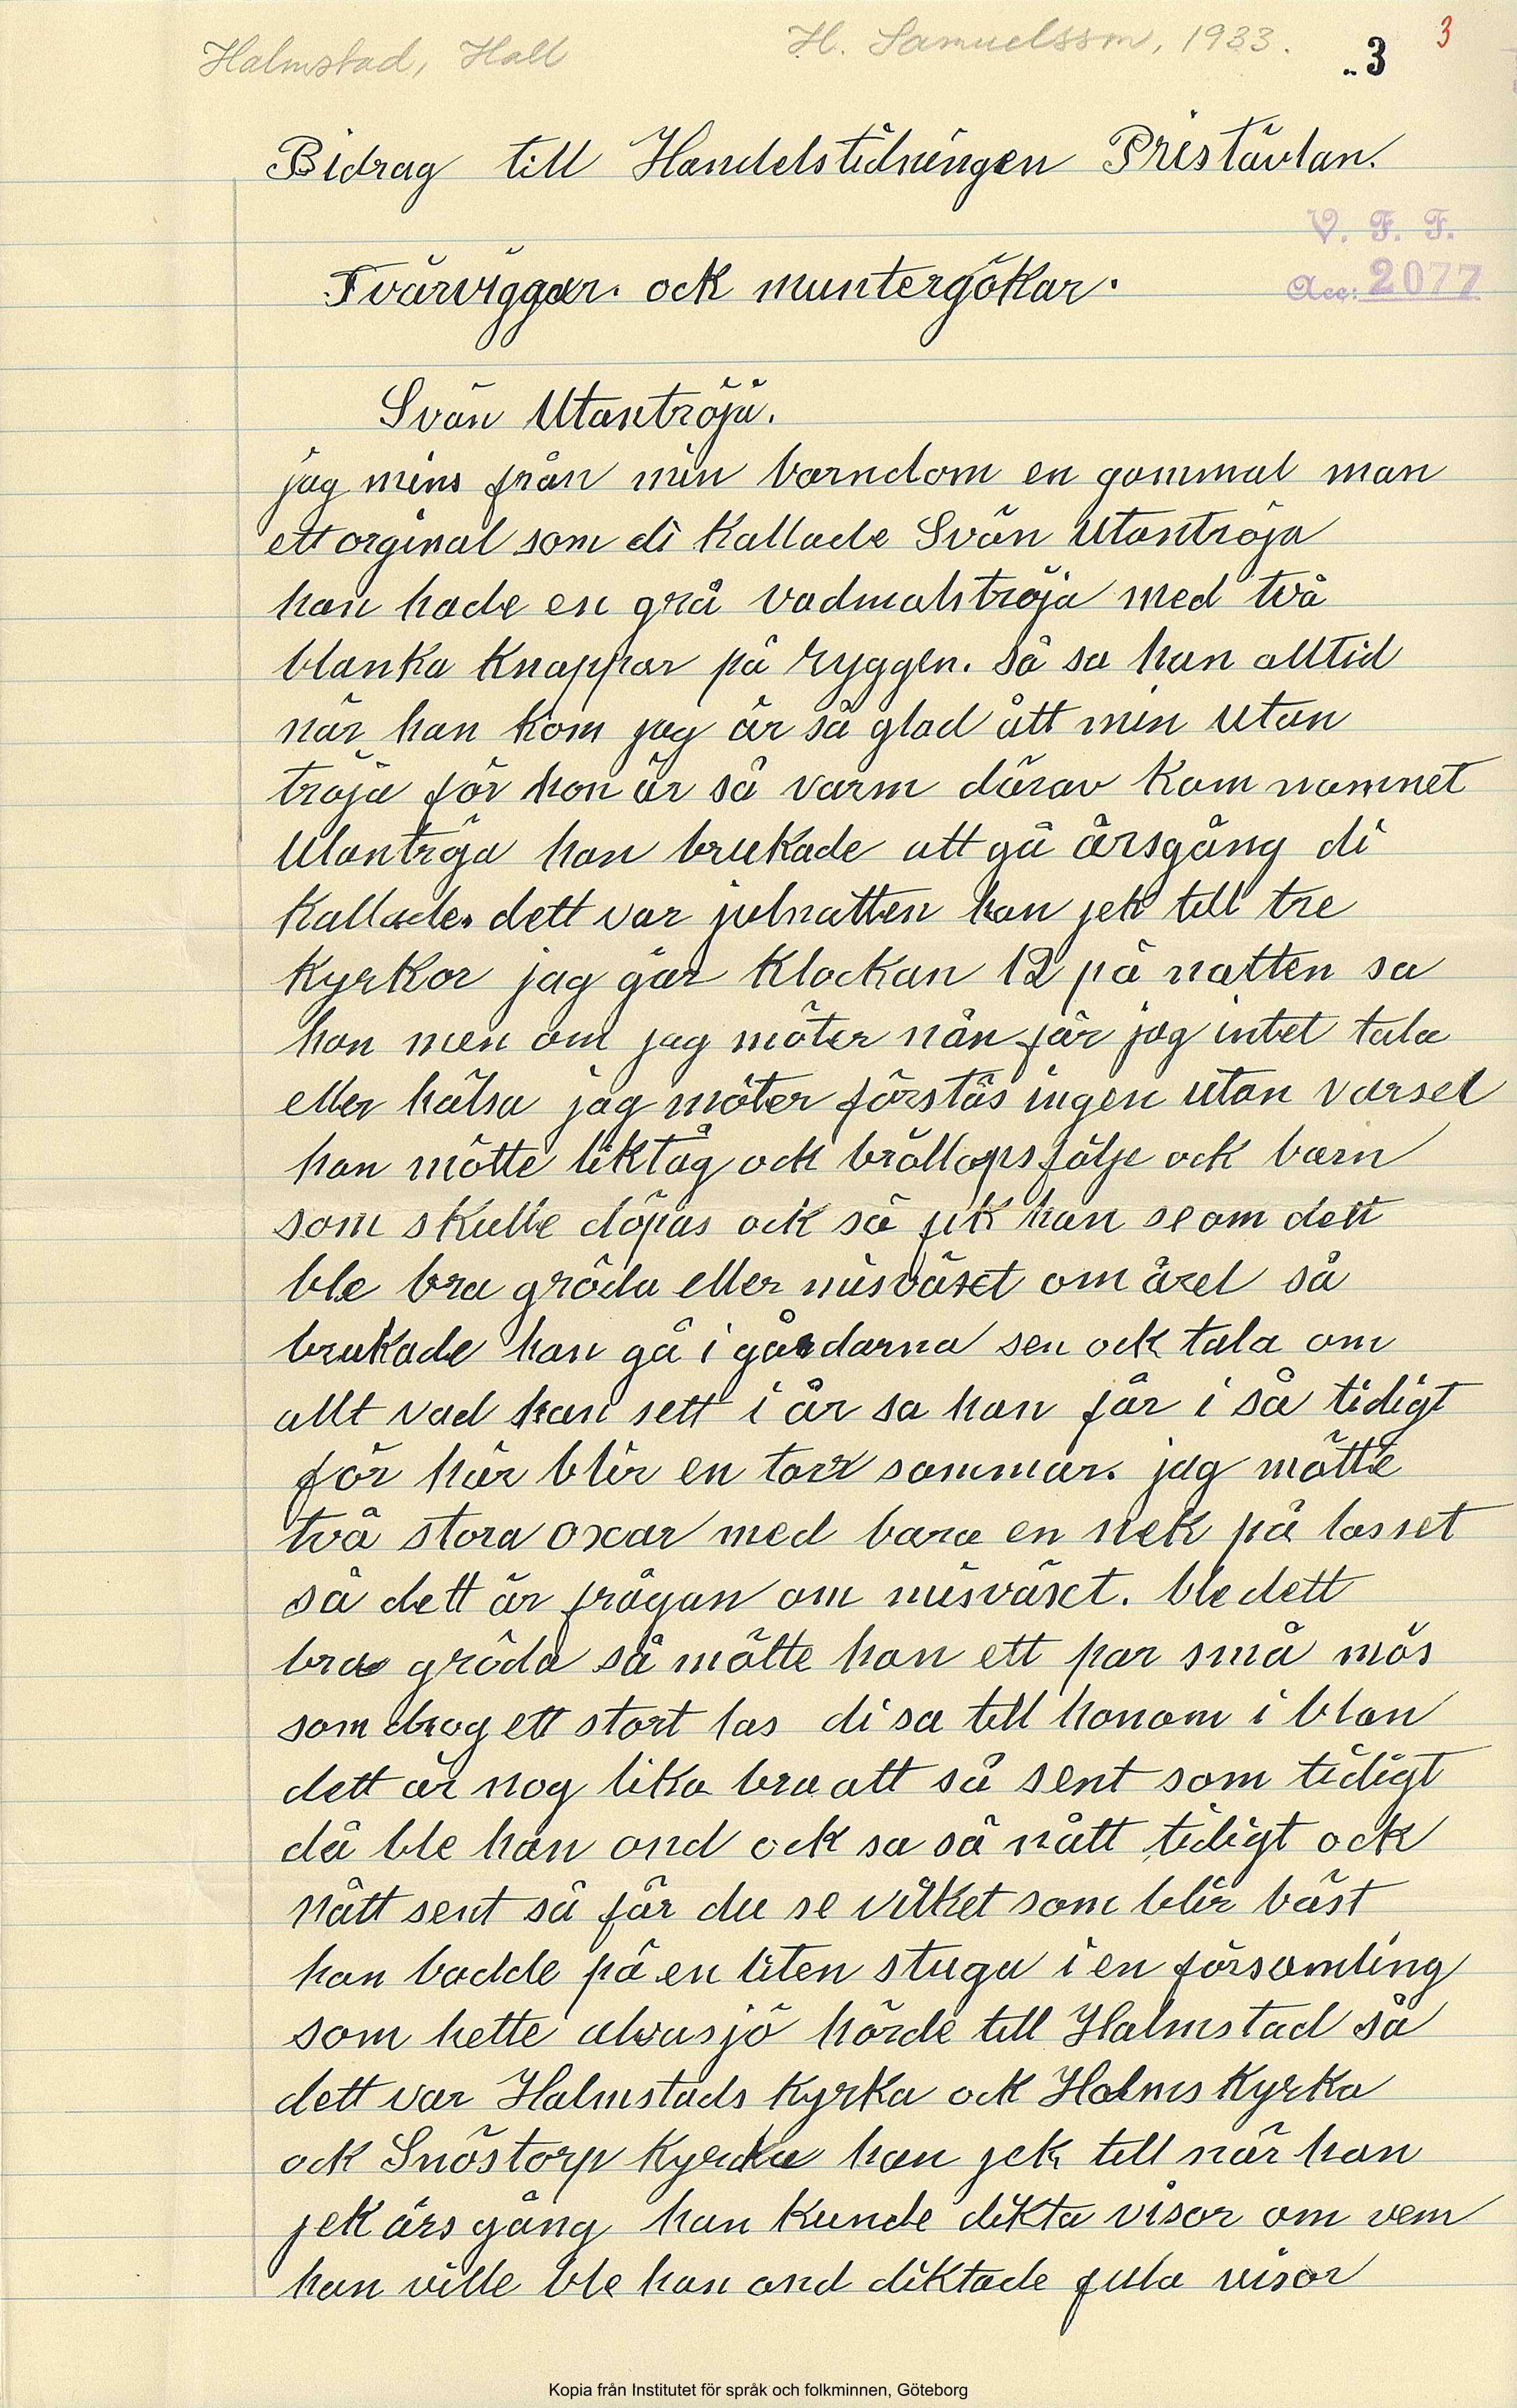 Halmstad, Hall
H. Samuelsson, 1933.
3
3
Bidrag till Handelstidningen Pristävlan.
V. F. F.
Acc: 2077
Tvärviggar. ock muntergökar.
Svän Utantröja.
jag mins från min barndom en gammal man
ett orginal som di kallade Svän Utantröja
han hade en grå vadmalströja med två
blanka knappar på ryggen. så sa han alltid
när han kom jag är så glad ått min utan
tröja för hon är så varm därav kom namnet
Utantröja han brukade att gå årsgång di
kallade. dett var julnatten han jek till tre
kyrkor jag går klockan 12 på natten sa
han men om jag möter nån får jag intet tala
eller hälsa jag möter förstås ingen utan varsel
han mötte liktåg ock bröllopsfölje ock barn
som skulle döpas ock så fik han se om dett
ble bra gröda eller misväxt om åxet så
brukade han gå i gårdarna sen ock tala om
allt vad han sett i år sa han får i så tidigt
för här blir en torr sommar. jag mötte
två stora oxar med bara en nek på lasset
så dett är frågan om misväxt. ble dett
bra gröda så mötte han ett par små mös
som drog ett stort las di sa till honom i blan
dett är nog lika bra att så sent som tidigt
då ble han ond ock sa så nått tidigt ock
nått sent så får du se vilket som blir bäst
han bodde på en liten stuga i en församling
som hette alvasjö hörde till Halmstad så
dett var Halmstads kyrka ock Holms kyrka
ock Snöstorp kyrka han jek till när han
jek års gång han kunde dikta visor om vem
han ville ble han ond diktade fula visor
Kopia från Institutet för språk och folkminnen, Göteborg